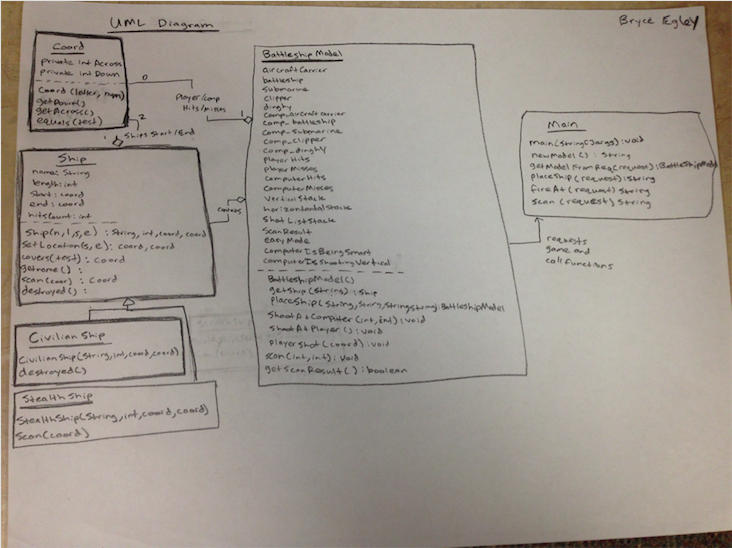 UML Diagram
Bryce Egley
Coord
private int Across
private int Down
Coord (letter, num)
getDown()
getAcross()
equals(test)
0
Player/comp
Hits/misses
1
2
Ships Start/End
1
Ship
name: String
length: int
start: coord
end: coord
hitsCount: int
Ship(n,l,s,e): String, int, coord, coord
SetLocation(s,e): coord, coord
covers(test): Coord
getname():
scan(coor): Coord
destroyed():
contains
Civilian Ship
CivilianShip(String, int, coord, coord)
destroyed()
Stealth Ship
StealthShip(String, int, coord, coord)
Scan(coord)
Battleship Model
aircraftCarrier
battleship
submarine
clipper
dinghy
Comp_aircraftcarrier
comp_battleship
comp_submarine
comp_clipper
comp_dinghy
player Hits
player Misses
computerHits
Computer Misses
VerticalStack
horizontandalStack
Shot List Stack
ScanResult
easyMode
ComputerIsBeingSmart
computerIsShootingVertical
BattleshipModel()
getShip(String): Ship
placeShip(String, String, String String): BattleshipModel
ShootAtComputer(int, int): void
shootAtPlayer(): void
playerShot(coord): void
scan(int, int): void
getScanResult(): boolean
Main
main(String[] args): void
newModel(): String
getModelFromReq(request): BattleShipModel
placeShip (request): String
fireAt (request) String
scan (request) String
requests
game and
call functions